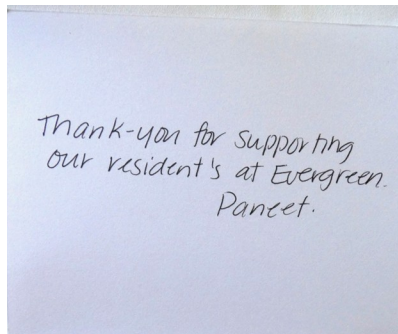 Thank-you for supporting
our resident's at Evergreen.
Paneet.